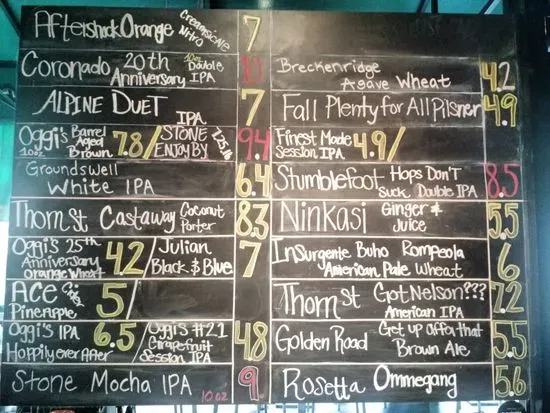 Aftershock Orange Creamsicale Nitro 7
Coronado 20th Anniversary 10oz Double IPA 10
Alpine Duet IPA 7
Oggi's Barrel Aged Brown 10oz 7.8 / Stone Enjoy By 7.25.16 9.4
Groundswell White IPA 6.4
Thorn St Castaway Coconut Porter 8.3
Oggi's 25th Anniversary Orange Wheat 4.2 / Julian Black & Blue 7
Ace Pineapple 5 /
Oggi's IPA Hoppily Ever After 6.5 / Oggi's #21 Grapefruit Session IPA 4.8
Stone Mocha IPA 10oz 9
Breckenridge Agave Wheat 4.2
Fall Plenty for All Pilsner 4.9
Finest Made Session IPA 4.9 /
Stumblefoot Hops Don't Suck Double IPA 8.5
Ninkasi Ginger & Juice 5.5
Insurgente Buho Rompeola American Pale Wheat 6
Thorn St Got Nelson??? American IPA 7.2
Golden Road Get up offa that Brown Ale 5.5
Rosetta Ommegang 5.6